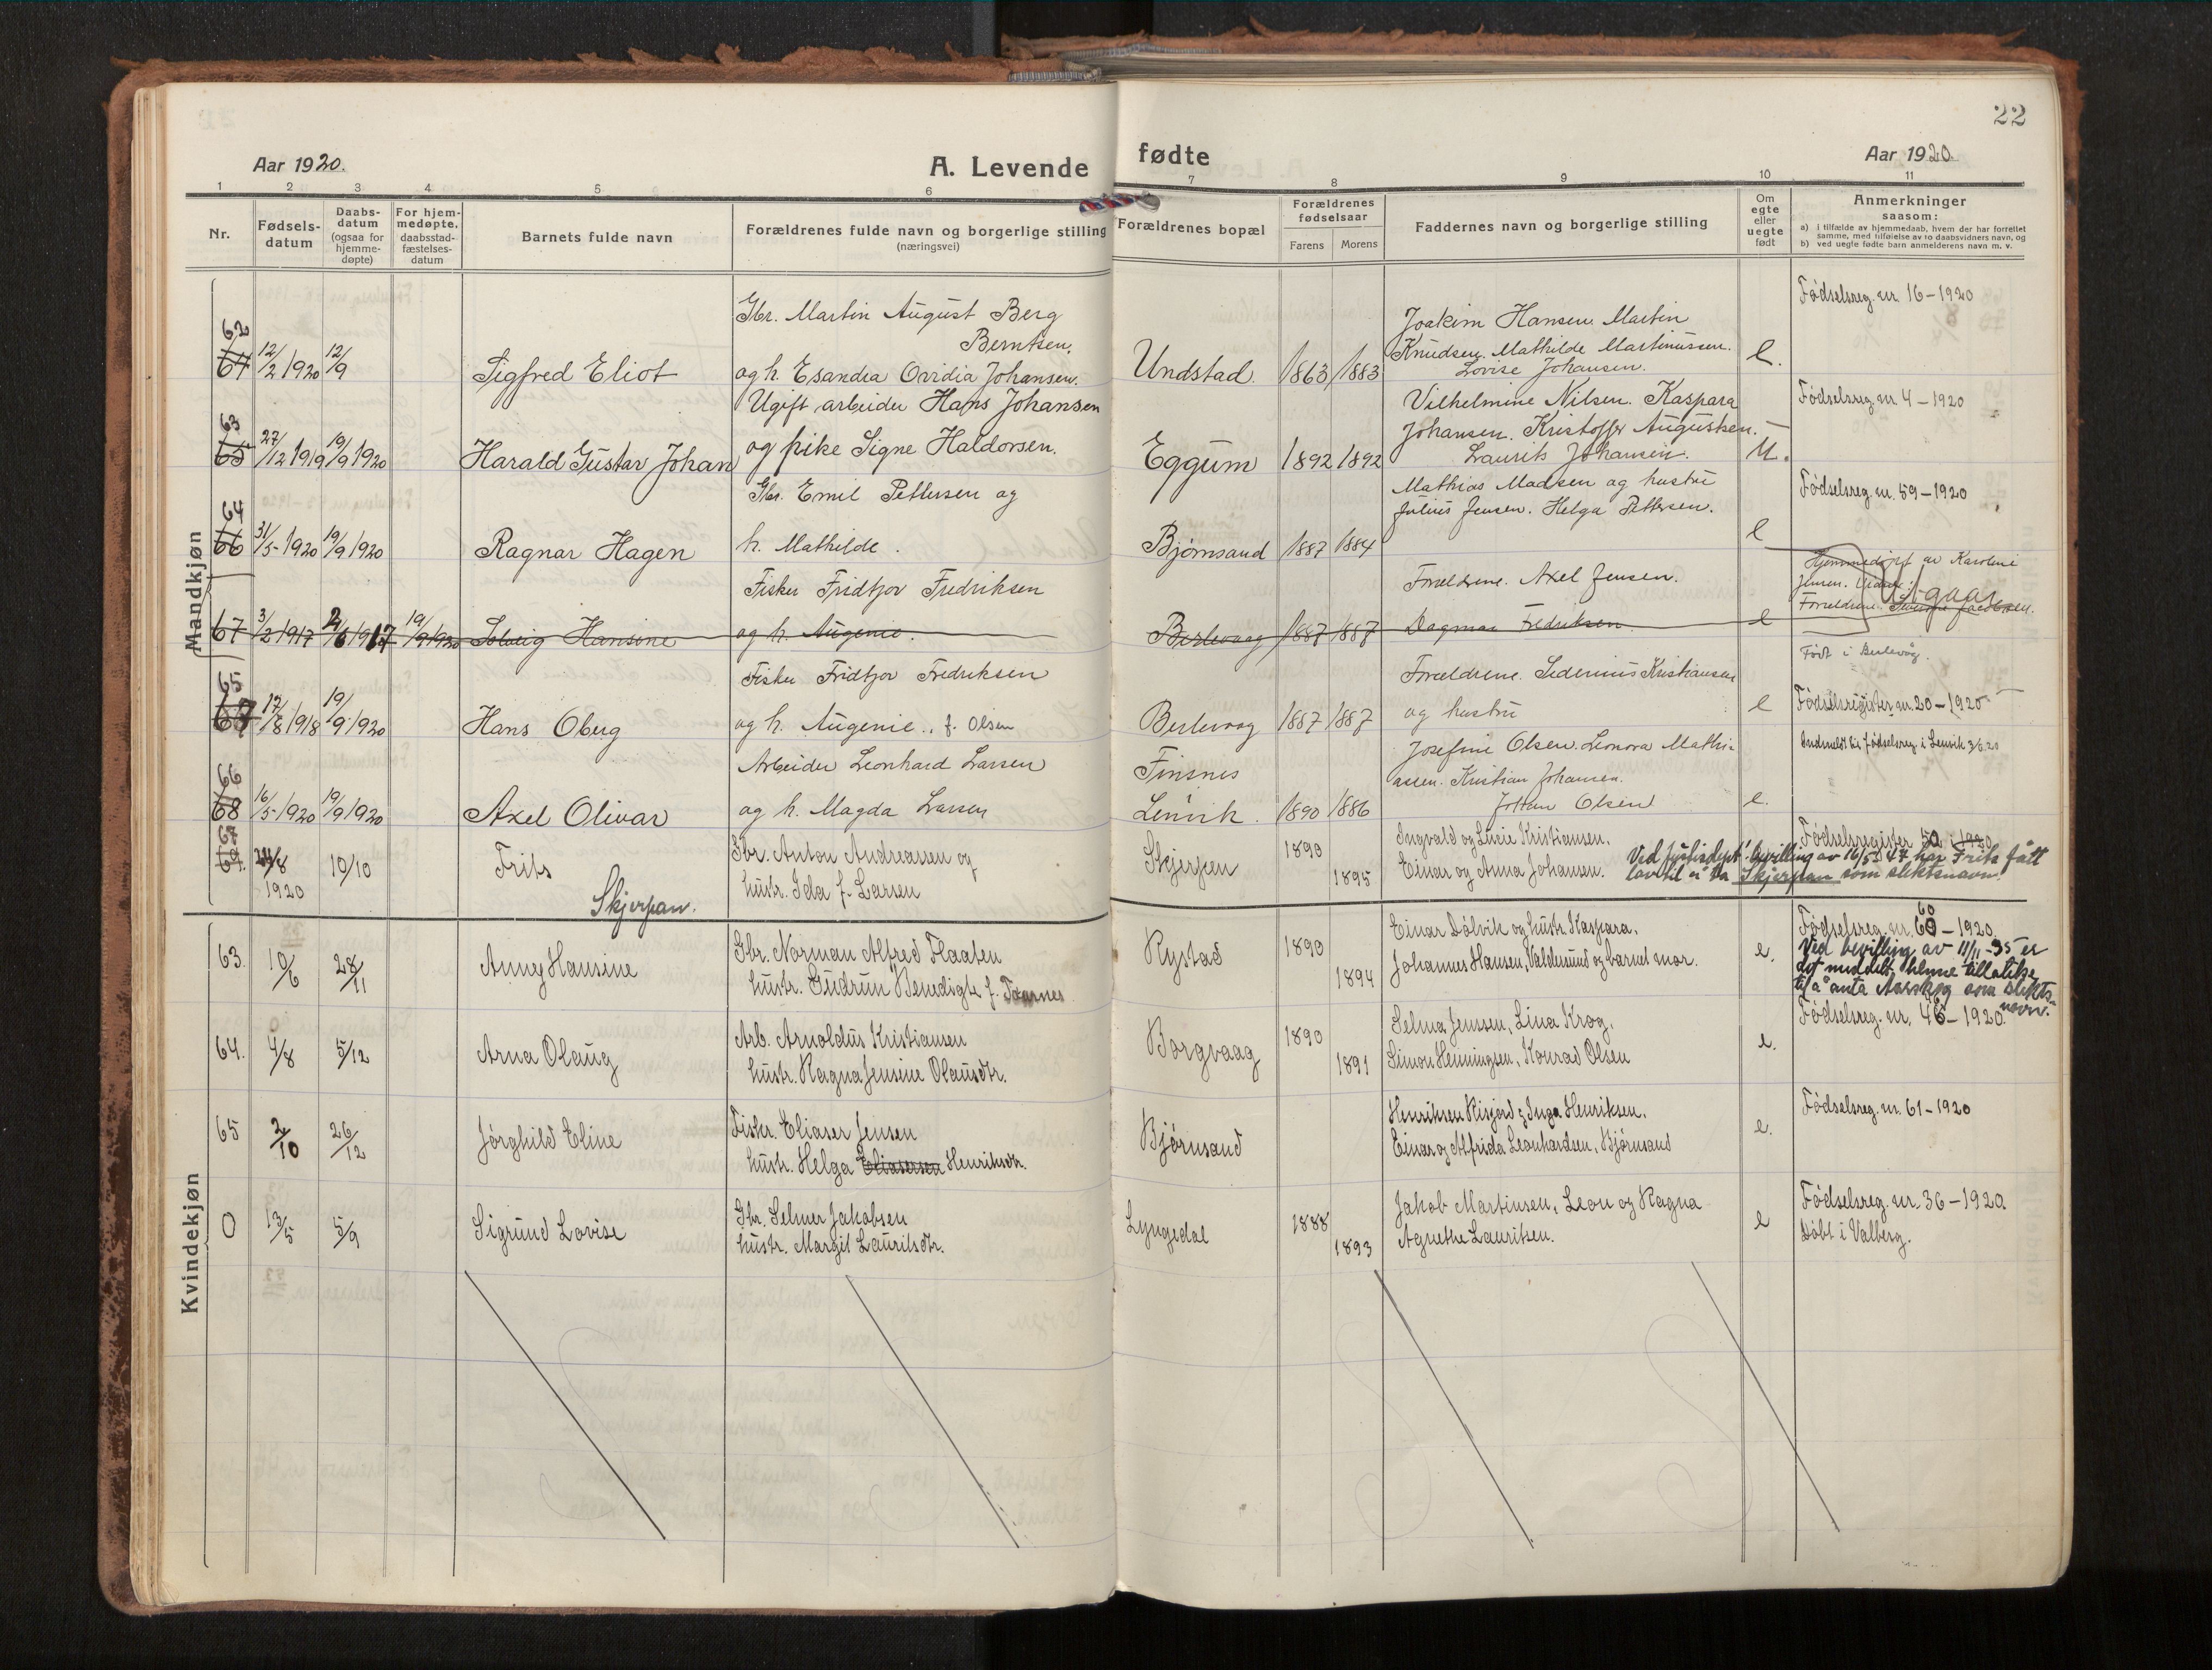 22
Aar 1920.
A. Levende fødte
Aar 1920.
1 2 3 4 5 6 7 8 9 10 11
Nr.
Fødsels-
datum
Daabs-
datum
(ogsaa for
hjemme-
døpte)
For hjem-
medøpte,
daabsstad-
fæstelses-
datum
Barnets fulde navn
Forældrenes fulde navn og borgerlige stilling
(næringsvei)
Forældrenes bopæl
Forældrenes
fødselsaar
Farens Morens
Faddernes navn og borgerlige stilling
Om
egte
eller
uegte
født
Anmerkninger
saasom:
a) i tilfælde av hjemmedaab, hvem der har forrettet
samme, med tilføielse av to daabsvidners navn, og
b) ved uegte fødte barn anmelderens navn m. v.
Mandkjøn
62
64 12/2 1920 12/9
Sigfred Eliot
Gbr. Martin August Berg
Berntsen.
og h. Esandra Ovidia Johansen.
Undstad. 1863 1883
Joakim Hansen. Martin
Knudsen. Mathilde Martinussen.
Lovise Johansen.
e.
Fødselsreg. nr. 16-1920
63
65 27/12 1919 19/9 1920
Harald Gustav Johan
Ugift arbeider Hans Johansen
og pike Signe Haldorsen.
Eggum 1892 1892
Vilhelmine Nilsen. Kaspara
Johansen. Kristoffer Augustsen.
Laurits Johansen.
U.
Fødselsreg. nr. 4-1920
64
66 31/5 1920 19/9 1920
Ragnar Hagen
Gbr. Emil Pettersen og
h. Mathilde.
Bjørnsand 1887 1884
Mathias Madsen og hustru
Julius Jensen. Helga Pettersen.
e
Fødselsreg. nr. 59-1920
67 3/2 1917 2/6 1917 19/9 1920
Solveig Hansine
Fisker Fridtjov Fredriksen
og h. Augenie.
Berlevaag 1887 1887
Forældrene. Axel Jensen.
Dagmar Fredriksen
e
Hjemmedøpt av Karoline
Jensen.
Forældrene. Jacobsen.
Utgaar
Født i Berlevåg.
65
67 17/8 1918 19/9 1920
Hans Oberg
Fisker Fridtjov Fredriksen
og h. Augenie.. f. Olsen
Berlevaag 1887 1887
Forældrene. Sedenius Kristiansen
og hustru
e
Fødselsregister nr. 20-1920
66
68 16/5 1920 19/9 1920
Axel Olivar
Arbeider Leonhard Larsen
og h. Magda Larsen
Finsnes
Lenvik. 1890 1886
Josefine Olsen. Leonora Mathi-
assen. Kristian Johansen.
Johan Olsen
e.
Indmeldt til fødselsreg. i Lenvik 3/6 20
67
69. 24/8
1920
10/10
Frits
Skjerpan.
Gbr. Anton Andreassen og
hustr. Ida f. Larsen
Skjerpen 1890 1895
Ingvald og Lucie Kristiansen.
Einar og Anna Johansen.
Fødselsregister 50 1920
Ved justisdept. bevilling av 16/5 47 har Frits fått
lov til å ta Skjerpan som slektsnavn.
Kvindekjøn
63. 10/6 28/11
Anny Hansine
Gbr. Norman Alfred Flaaten
hustr. Gudrun Benedigte f.
Rystad 1890 1894
Einar Dølvik og hustr. Kaspara.
Johannes Hansen, Valdersund og barnets mor.
e.
Fødselsreg. nr. 60-1920.
Ved bevilling av 11/11-35 er
det meddelt henne tillatelse
til å anta Aarskog som slekts-
navn.
64. 4/8 5/12
Arna Olaug
Arb. Arnoldus Kristiansen
hustr. Ragna Jensine Olausdtr.
Borgvaag 1890 1891
Selma Jenssen, Lina Krog,
Simon Henningsen, Konrad Olsen
e.
Fødselsreg. nr. 46-1920.
65 2/10 26/12
Jørghild Eline
Fisker. Eliaser Jensen
hustr. Helga Eliasersen Henriksdtr.
Bjørnsand
Henriksen Risjord og Inga Henriksen.
Einar og Alfrida Leonhardsen, Bjørnsand
e.
Fødselsreg. nr. 61-1920
0 13/5 5/9
Sigrund Lovise
Gbr. Selmer Jakobsen
hustr. Margit Lauritsdtr.
Lyngedal 1888 1893
Jakob Martinsen, Leon og Ragna
Agnethe Lauritsen.
e
Fødselsreg. nr. 36-1920.
Døbt i Valberg.